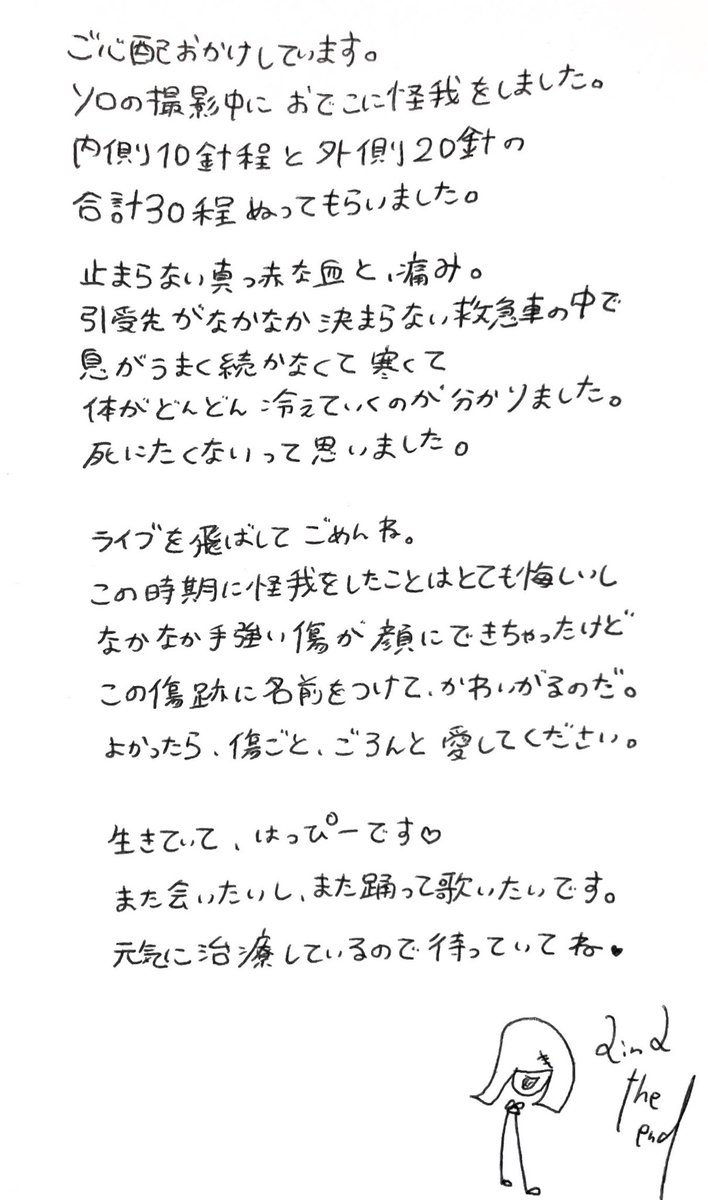 ご心配おかけしています。
ソロの撮影中に おでこに怪我をしました。
内側10針程と外側20針の
合計30程ぬってもらいました。
止まらない真っ赤な血と、痛み。
引受先がなかなか決まらない救急車の中で
息がうまく続かなくて寒くて
体がどんどん冷えていくのが分かりました。
死にたくないって思いました。
ライブを飛ばしてごめんね。
この時期に怪我をしたことはとても悔しいし
なかなか手強い傷が顔にできちゃったけど
この傷跡に名前をつけて、かわいがるのだ。
よかったら、傷ごと、ごろんと愛してください。
生きていて、はっぴーです♡
また会いたいし、また踊って歌いたいです。
元気に治療しているので待っていてね♥
the
end